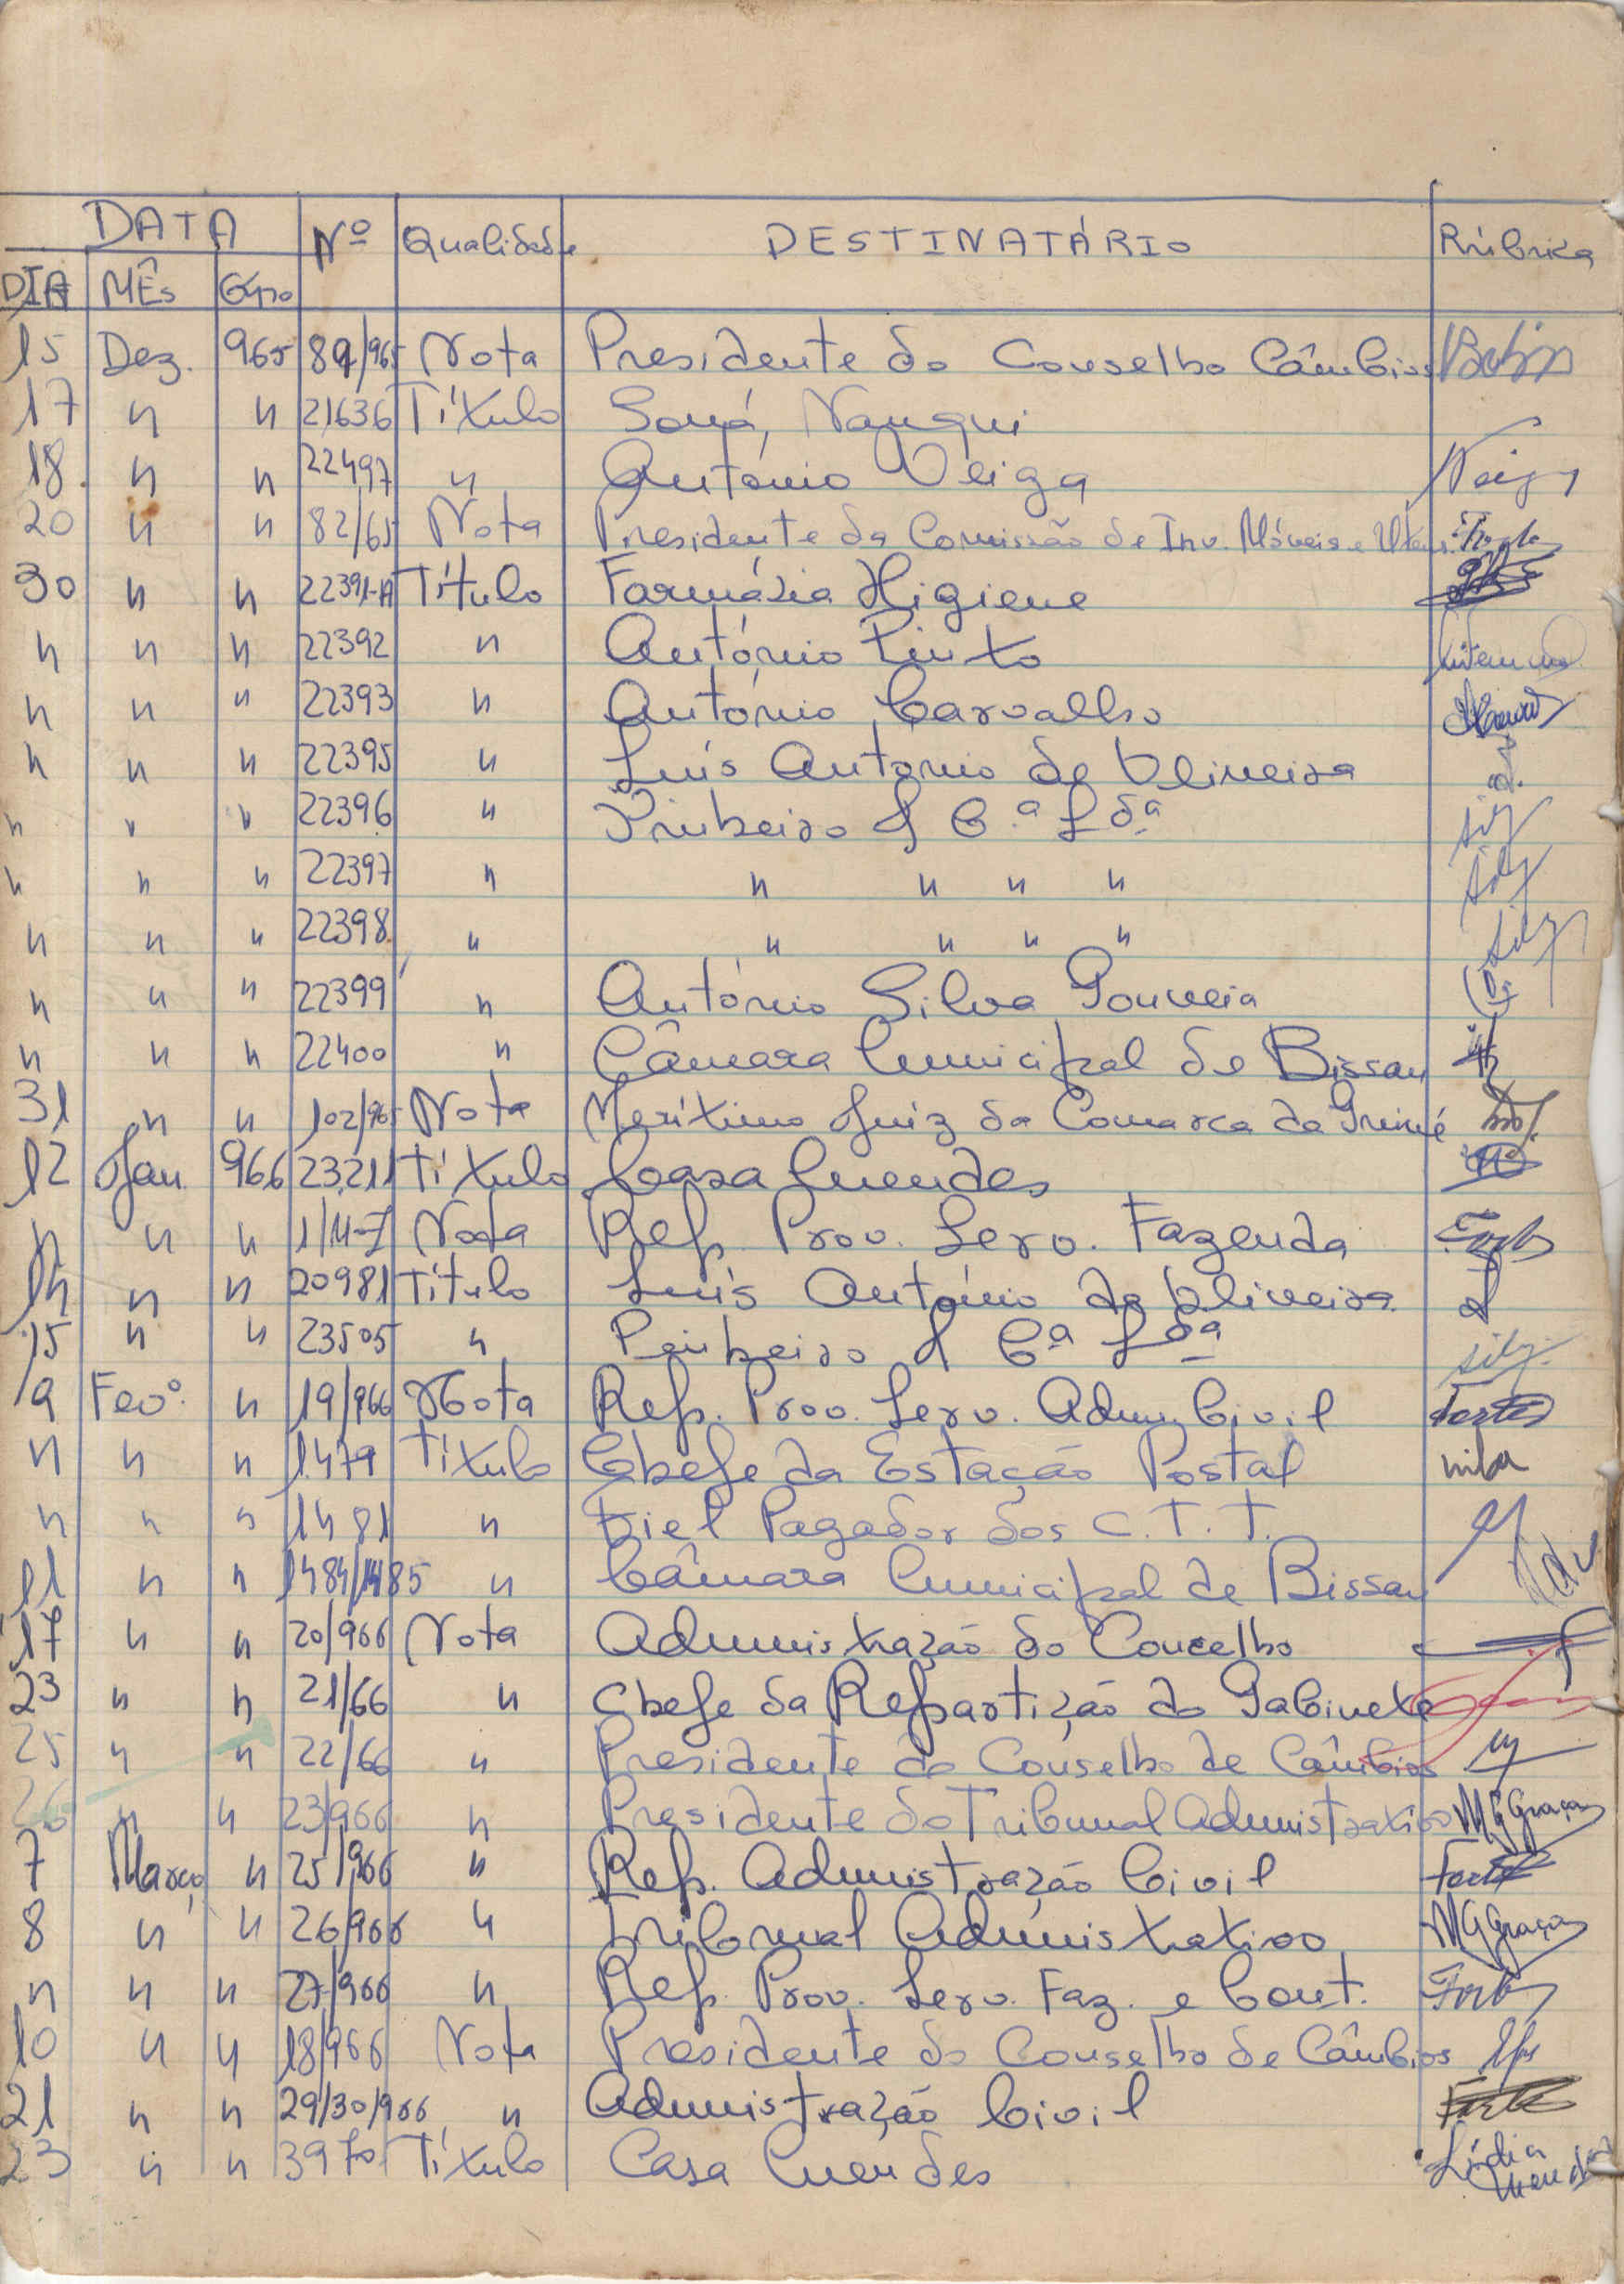 DATA Nº Qualidade DESTINATÁRIO Rúbrica
DIA MÊS Ano
15 Dez. 965 89/965 Nota Presidente do Conselho Câmbios
17 " " 21636 Título Soná, Nanqui
18 " " 22497 " António Veiga Veiga
20 " " 82/65 Nota Presidente da Comissão de Inv. Móveis e Utens.
30 " " 22391-A Título Farmásia Higiene
" " " 22392 " António Pinto
" " " 22393 " António Carvalho
" " " 22395 " Luís António de Oliveira
" " " 22396 " Pinheiro & C.ª Ldª
" " " 22397 " " " " "
" " " 22398 " " " " "
" " " 22399 " António Silva Gouveia
" " " 22400 " Câmara Municipal de Bissau
31 " " 102/965 Nota Meritimo Juiz da Comarca da Guiné
12 Jan 966 23,211 Título Casa Mendes
" " " 1/M-I Nota Rep. Prov. Serv. Fazenda
14 " " 20981 Título Luís António de Oliveira
15 " " 23505 " Pinheiro & Cª Ldª
9 Fevº. " 19/966 Nota Rep. Prov. Serv. Adm. Civil Fortes
" " " 1479 Título Chefe da Estação Postal
" " " 1481 " Fiel Pagador dos C.T.T.
11 " " 1484/1485 " Câmara Municipal de Bissau
17 " " 20/966 Nota Administração do Concelho
23 " " 21/66 " Chefe da Repartição do Gabinete
25 " " 22/66 " Presidente do Conselho de Câmbios
26 " " 23/966 " Presidente do Tribunal Administrativo MGGraça
7 Março " 25/966 " Rep. Administração Civil
8 " " 26/966 " Tribunal Administrativo MGGraça
" " " 27/966 " Rep. Prov. Serv. Faz. e Cont.
10 " " 18/966 Nota Presidente do Conselho de Câmbios
21 " " 29/30/966 " Administração Civil
23 " " 3970 Título Casa Mendes Lídia Mendes